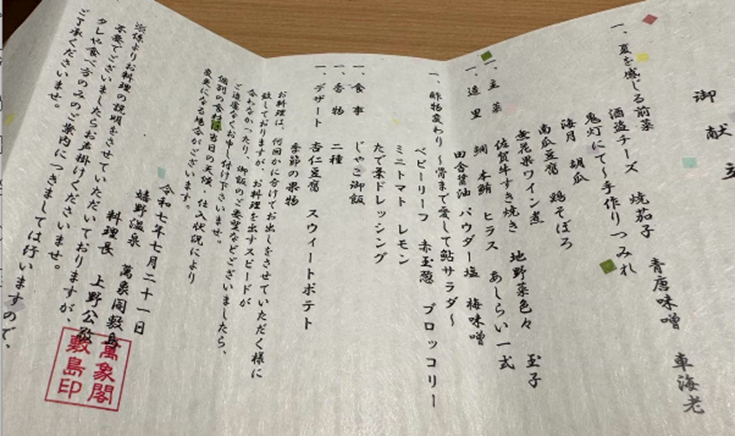 御献立
一、夏を感じる前菜
酒盗チーズ 焼茄子 青唐味噌 車海老
鬼灯にて〜手作りつみれ
海月 胡瓜
南瓜豆腐 鶏そぼろ
無花果ワイン煮
一、主菜
佐賀牛すき焼き 地野菜色々 玉子
一、造里
鯛 本鮪 ヒラス あしらい一式
田舎醤油 パウダー塩 梅味噌
一、酢物変わり 〜骨まで愛して鮎サラダ〜
ベビーリーフ 赤玉葱 ブロッコリー
ミニトマト レモン
たで葉ドレッシング
一、食事 じゃこ御飯
一、香物 二種
一、デザート 杏仁豆腐 スウィートポテト
季節の果物
お料理は、何回かに分けてお出しをさせていただく様に
致しておりますが、お料理を出すスピードが
合わなかったり、御飯のご要望などございましたら、
ご遠慮なくお申し付け下さいませ。
個別の食材は当日の天候、仕入状況により
変更になる場合がございます。
令和七年七月二十一日
嬉野温泉 萬象閣敷島
料理長 上野公
萬象閣敷島印
※係よりお料理の説明をさせていただいておりますが、
不要でございましたらお声掛けくださいませ。
タレや食べ方のみのご案内につきましては行いますので、
ご了承くださいませ。